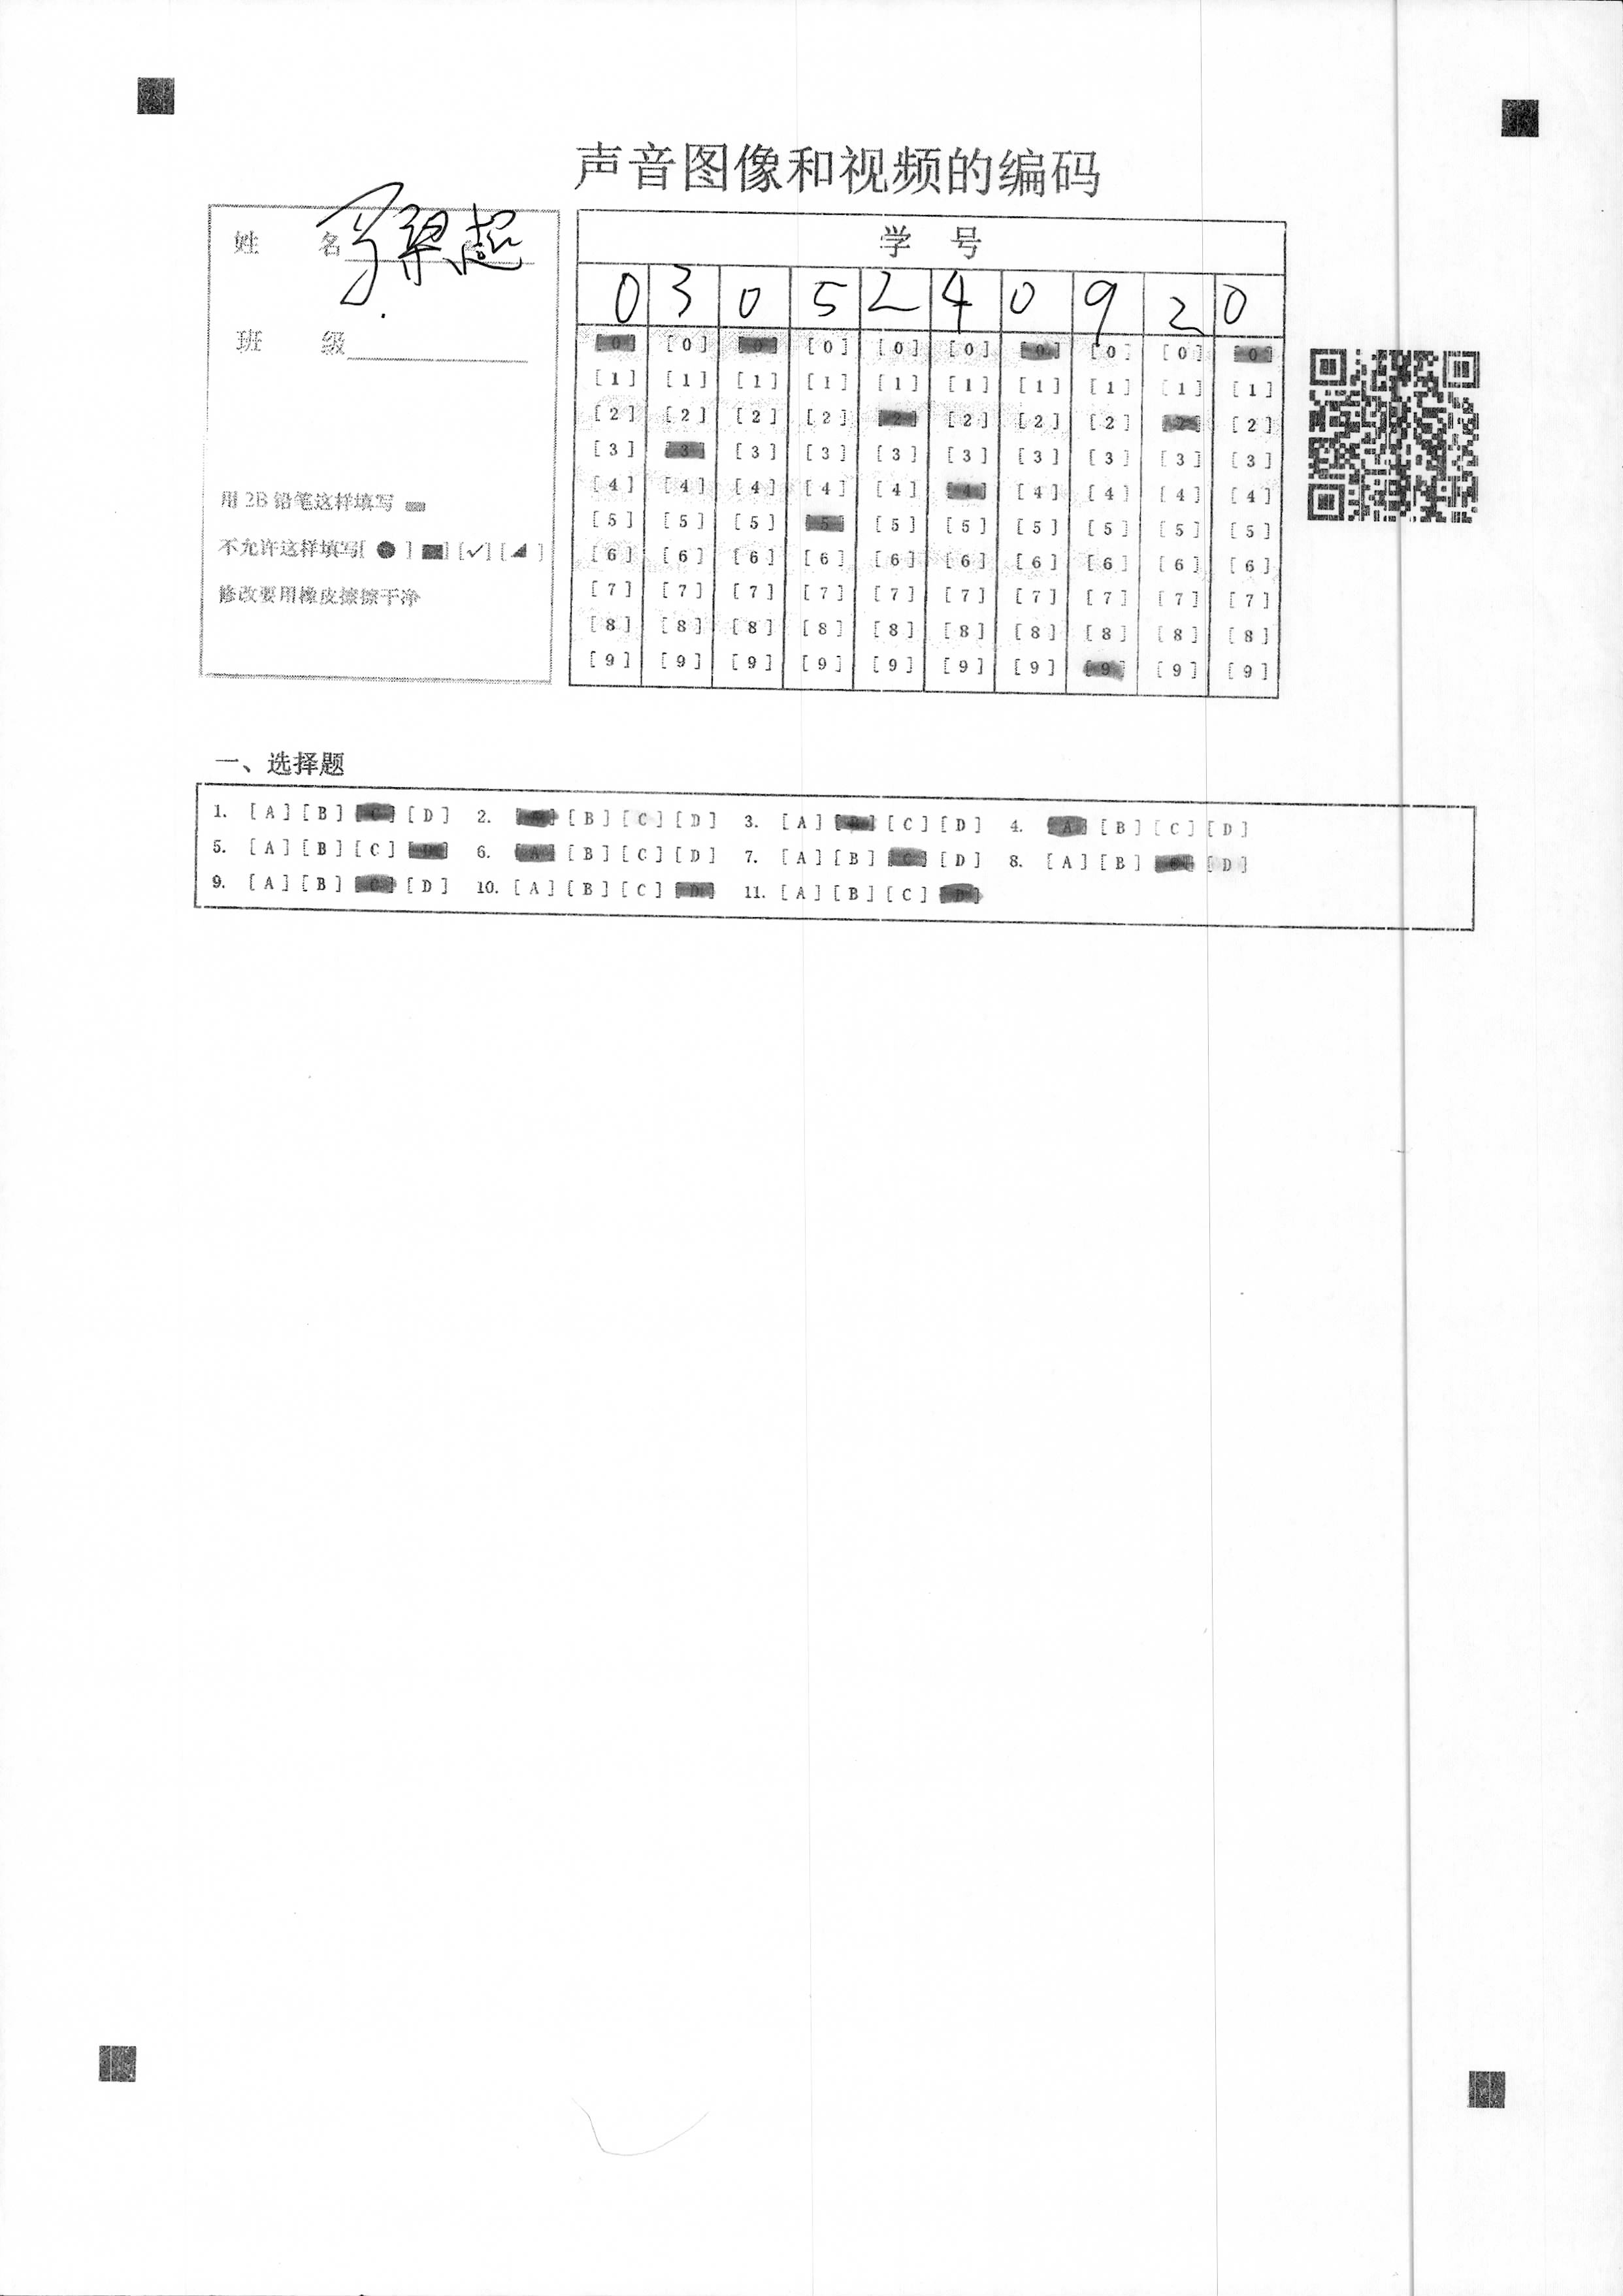 声音图像和视频的编码
姓 名
班 级
用 2B 铅笔这样填写
不允许这样填写[ ● ] [■] [✓] [◢ ]
修改要用橡皮擦擦干净
学 号
0 3 0 5 2 4 0 9 2 0
[0] [0] [0] [0] [0] [0] [0] [0] [0] [0]
[1] [1] [1] [1] [1] [1] [1] [1] [1] [1]
[2] [2] [2] [2] [2] [2] [2] [2] [2] [2]
[3] [3] [3] [3] [3] [3] [3] [3] [3] [3]
[4] [4] [4] [4] [4] [4] [4] [4] [4] [4]
[5] [5] [5] [5] [5] [5] [5] [5] [5] [5]
[6] [6] [6] [6] [6] [6] [6] [6] [6] [6]
[7] [7] [7] [7] [7] [7] [7] [7] [7] [7]
[8] [8] [8] [8] [8] [8] [8] [8] [8] [8]
[9] [9] [9] [9] [9] [9] [9] [9] [9] [9]
一、选择题
1. [A] [B] [C] [D] 2. [A] [B] [C] [D] 3. [A] [B] [C] [D] 4. [A] [B] [C] [D]
5. [A] [B] [C] [D] 6. [A] [B] [C] [D] 7. [A] [B] [C] [D] 8. [A] [B] [C] [D]
9. [A] [B] [C] [D] 10. [A] [B] [C] [D] 11. [A] [B] [C] [D]